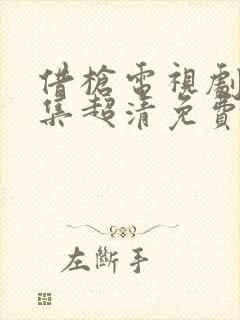 借槍電視劇
集超清免費
左斷手